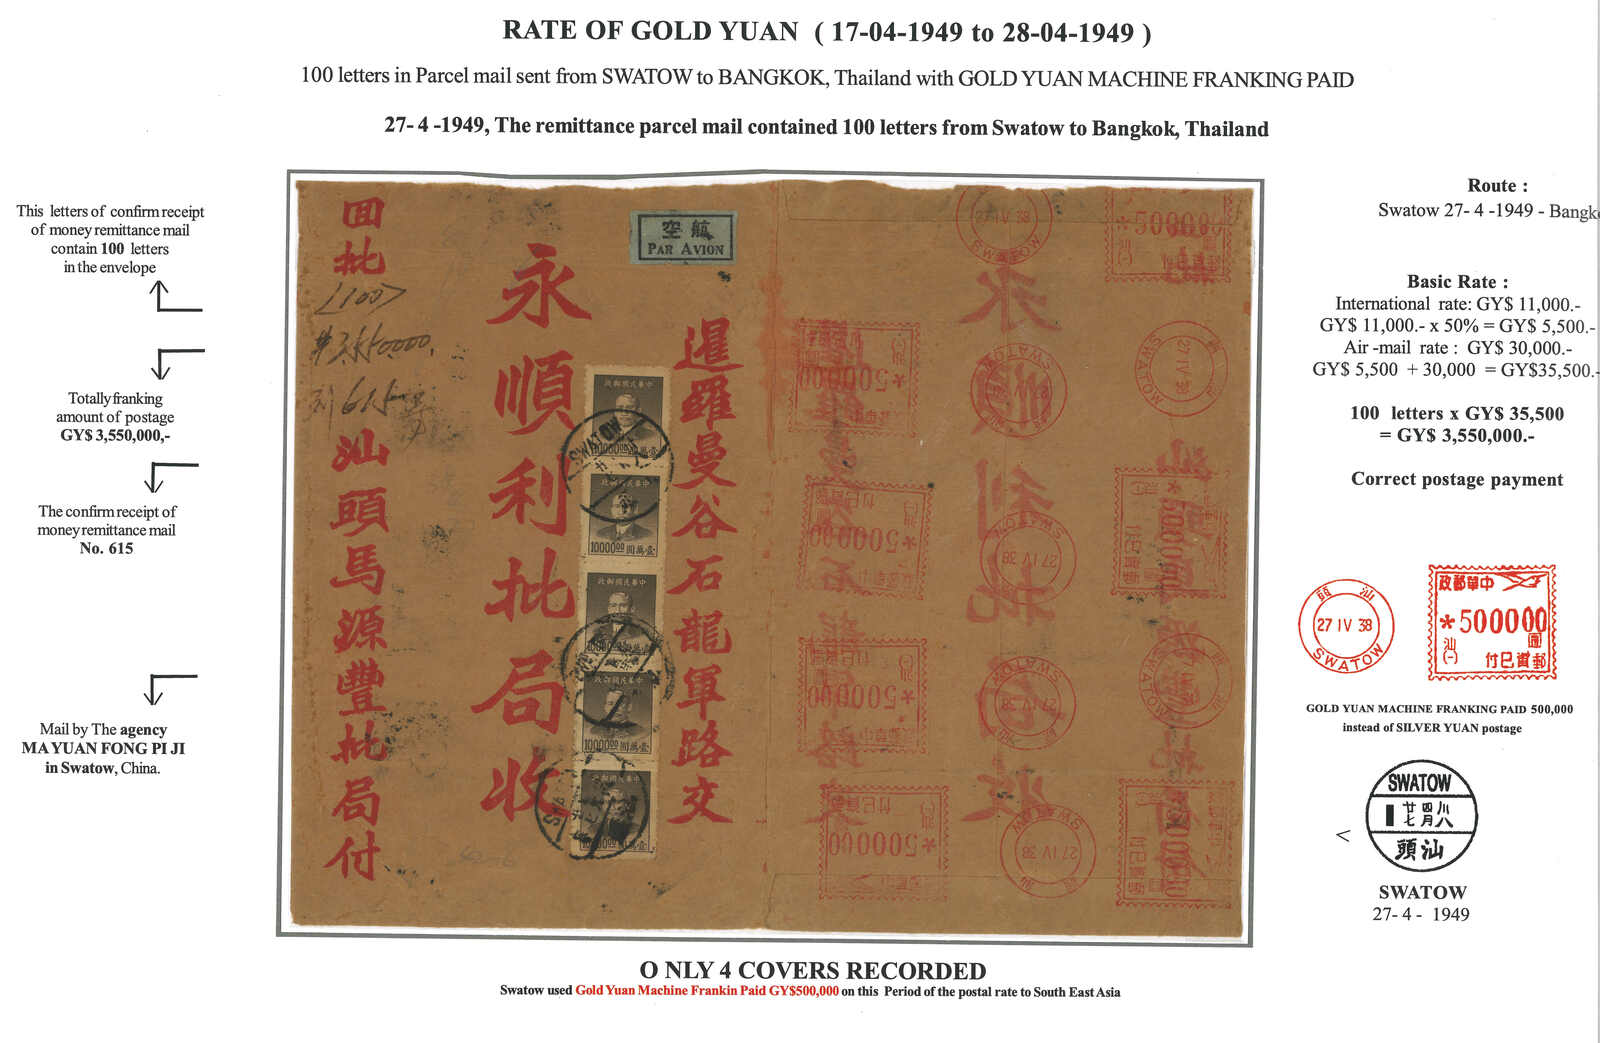 RATE OF GOLD YUAN ( 17-04-1949 to 28-04-1949 )
100 letters in Parcel mail sent from SWATOW to BANGKOK, Thailand with GOLD YUAN MACHINE FRANKING PAID
27- 4 -1949, The remittance parcel mail contained 100 letters from Swatow to Bangkok, Thailand
This letters of confirm receipt
of money remittance mail
contain 100 letters
in the envelope
Totally franking
amount of postage
GY$ 3,550,000,-
The confirm receipt of
money remittance mail
No. 615
Mail by The agency
MA YUAN FONG PI JI
in Swatow, China.
回批
<100>
$3550000.
列615
汕頭馬源豐批局付
永順利批局收
航空
PAR AVION
暹羅曼谷石龍軍路交
中華民國郵政
10000.00
SWATOW
中華民國郵政
10000.00
中華民國郵政
10000.00
中華民國郵政
10000.00
中華民國郵政
27 IV 38
SWATOW
*500000
*500000
SWATOW
27 IV 38
27 IV 38
SWATOW
*500000
SWATOW
27 IV 38
*500000
*500000
SWATOW
27 IV 38
SWATOW
*500000
SWATOW
27 IV 38
Route :
Swatow 27- 4 -1949 - Bangk
Basic Rate :
International rate: GY$ 11,000.-
GY$ 11,000.- x 50% = GY$ 5,500.-
Air -mail rate : GY$ 30,000.-
GY$ 5,500 + 30,000 = GY$35,500.-
100 letters x GY$ 35,500
= GY$ 3,550,000.-
Correct postage payment
汕頭
27 IV 38
SWATOW
中華郵政
*500000
圓
汕(一)
郵資已付
GOLD YUAN MACHINE FRANKING PAID 500,000
instead of SILVER YUAN postage
SWATOW
卅八
四月
廿七
汕頭
<
SWATOW
27- 4 - 1949
O NLY 4 COVERS RECORDED
Swatow used Gold Yuan Machine Frankin Paid GY$500,000 on this Period of the postal rate to South East Asia